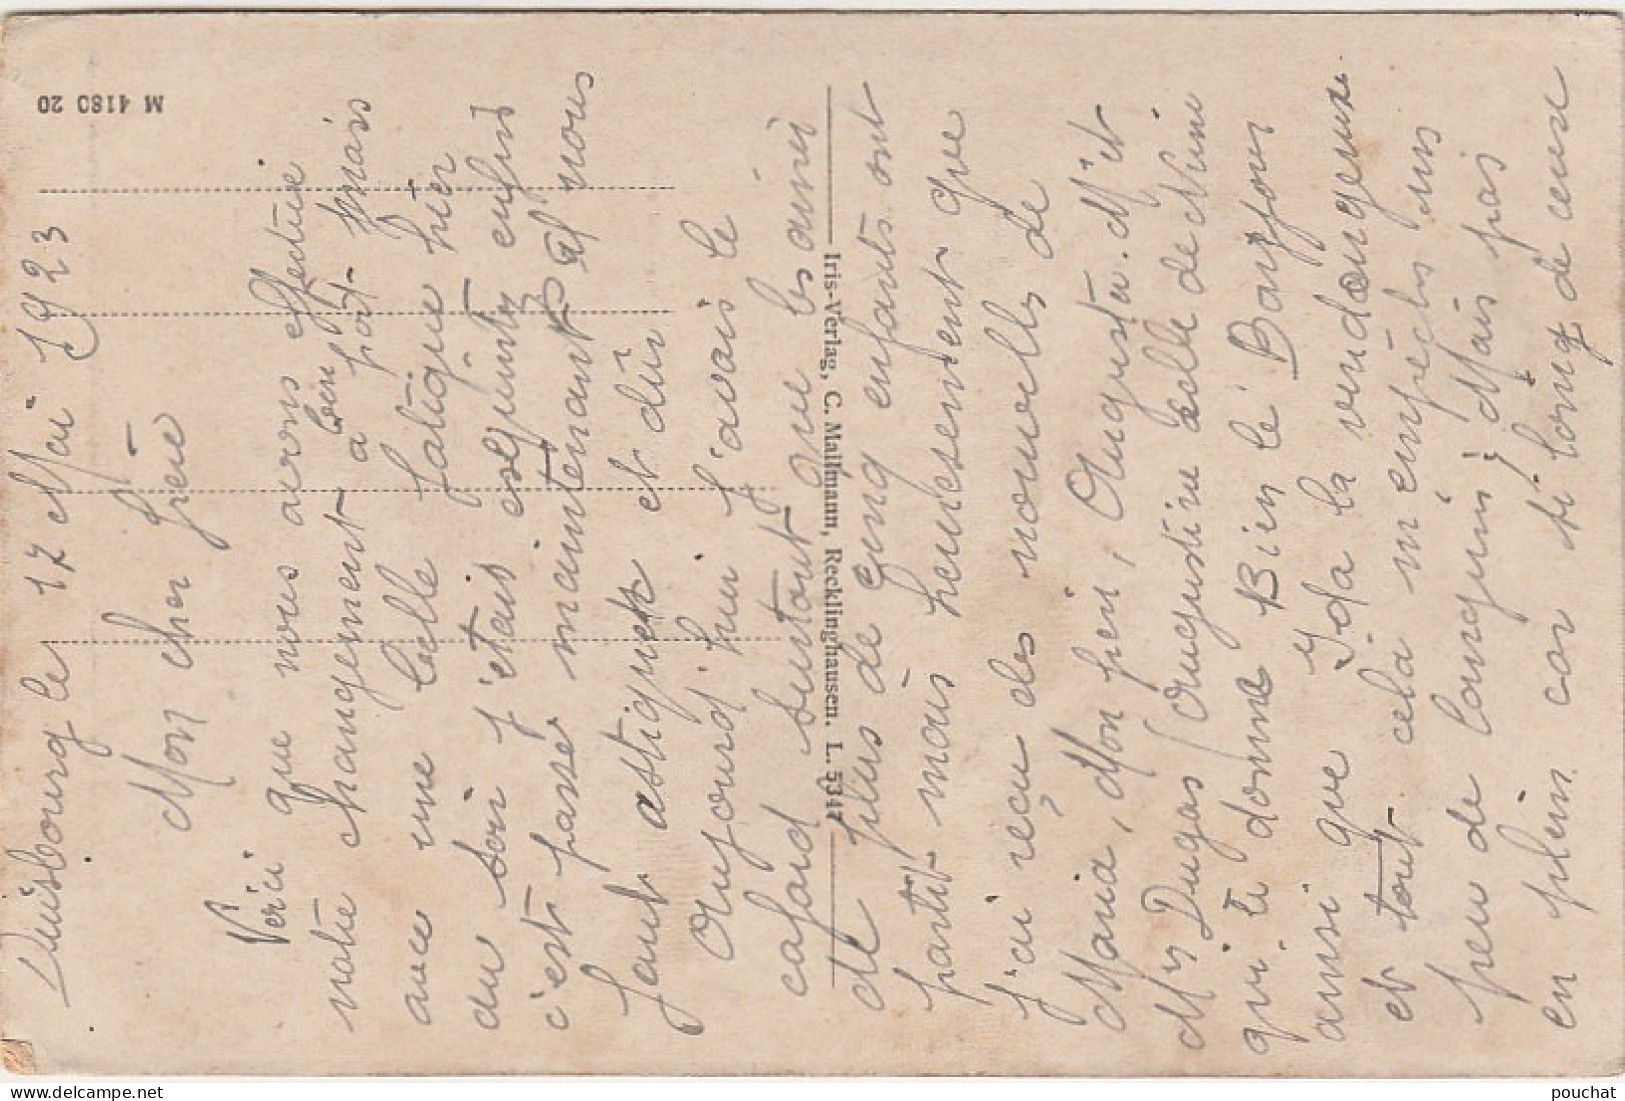 Duisbourg le 17 Mai 1923
Mon cher frère
Voici que nous avons effectué
notre changement à bien port mais
avec une belle fatigue hier
du soir j'étais esquinté enfin
c'est passé maintenant et nous
faut astiquer et dur
Aujourd'hui j'avais le
cafard surtout que les amies
de plus de cinq enfants ont
partit mais heureusement que
j'ai reçu des nouvelles de
Maria, Mon père, Augusta. M et
Mr Dugas Augustine celle de Mimi
qui te donne Bien le Bonjour
ainsi que Ida la vendangeuse
et tout cela m'empêche un
peu de languir, Mais pas
en plein car si long de ceuse
M 4180 20
Iris-Verlag, C. Mallmann, Recklinghausen. L. 5347
pouchat